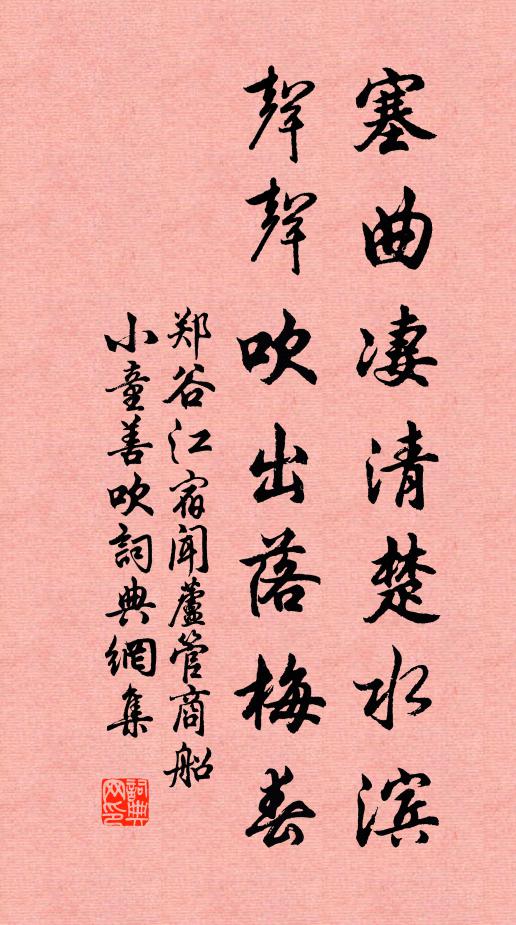 塞曲凄清楚水滨
聲聲吹出落梅春
郑谷江宿闻蘆管商船
小童善吹詞典網集
詞典网印